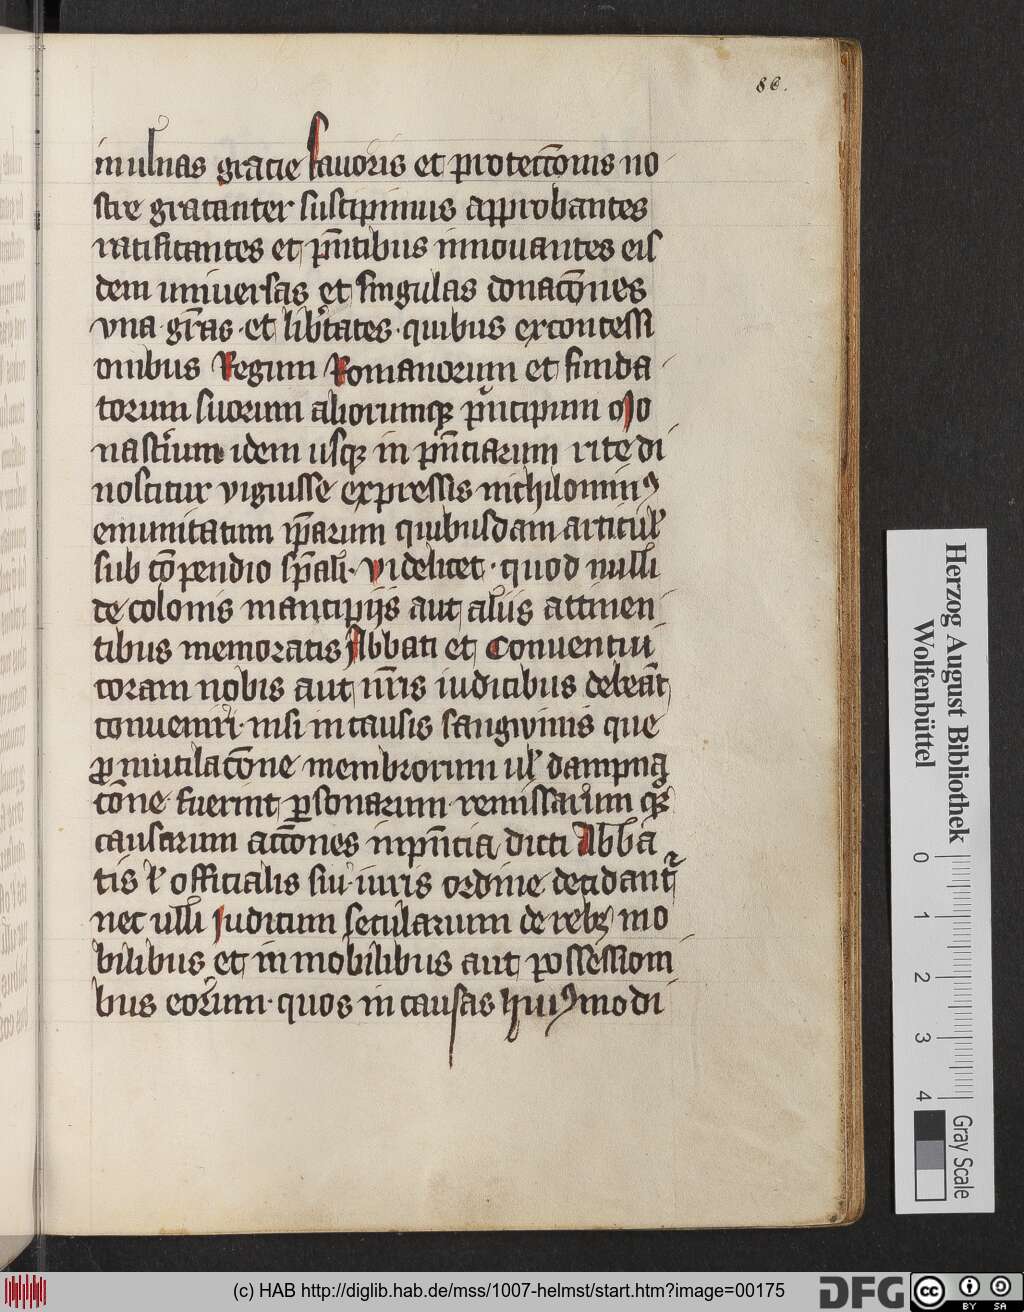 86.
in ulnas gracie fauoris et protectōnis no
stre gratanter suscipimus approbantes
ratificantes et pn̄tibus innouantes eis
dem uniuersas et singulas donacōnes
vna gr̄as et lib'tates quibus ex concessi
onibus Regum Romanorum et funda
torum suorum aliorumq; pͥncipum Mo
nast'ium idem usq; in pn̄ciarum rite di
noscitur viguisse expressis nichilominꝰ
emunitatum ip̄arum quibusdam articul'
sub cōpendio sp̄ali. Videlicet quod nulli
de colonis mancipijs aut aliis attinen
tibus memoratis Abbati et Conuentui
coram nobis aut nr̄is iudicibus debeāt
conueniri nisi in causis sangwinis que
ꝓ mutilacōne membrorum ul' dampna
cōne fuerint ꝑsonarum remissarum q;
causarum accōnes in pn̄cia dicti Abba
tis l' officialis sui iuris ordine decidant̄
nec ulli Iudicum secularium de rebꝫ mo
bilibus et inmobilibus aut possessioni
bus eorum quos in causas huiꝰmodi
Herzog August Bibliothek
Wolfenbüttel
0 1 2 3 4
Gray Scale
(c) HAB http://diglib.hab.de/mss/1007-helmst/start.htm?image=00175
DFG
cc
BY SA